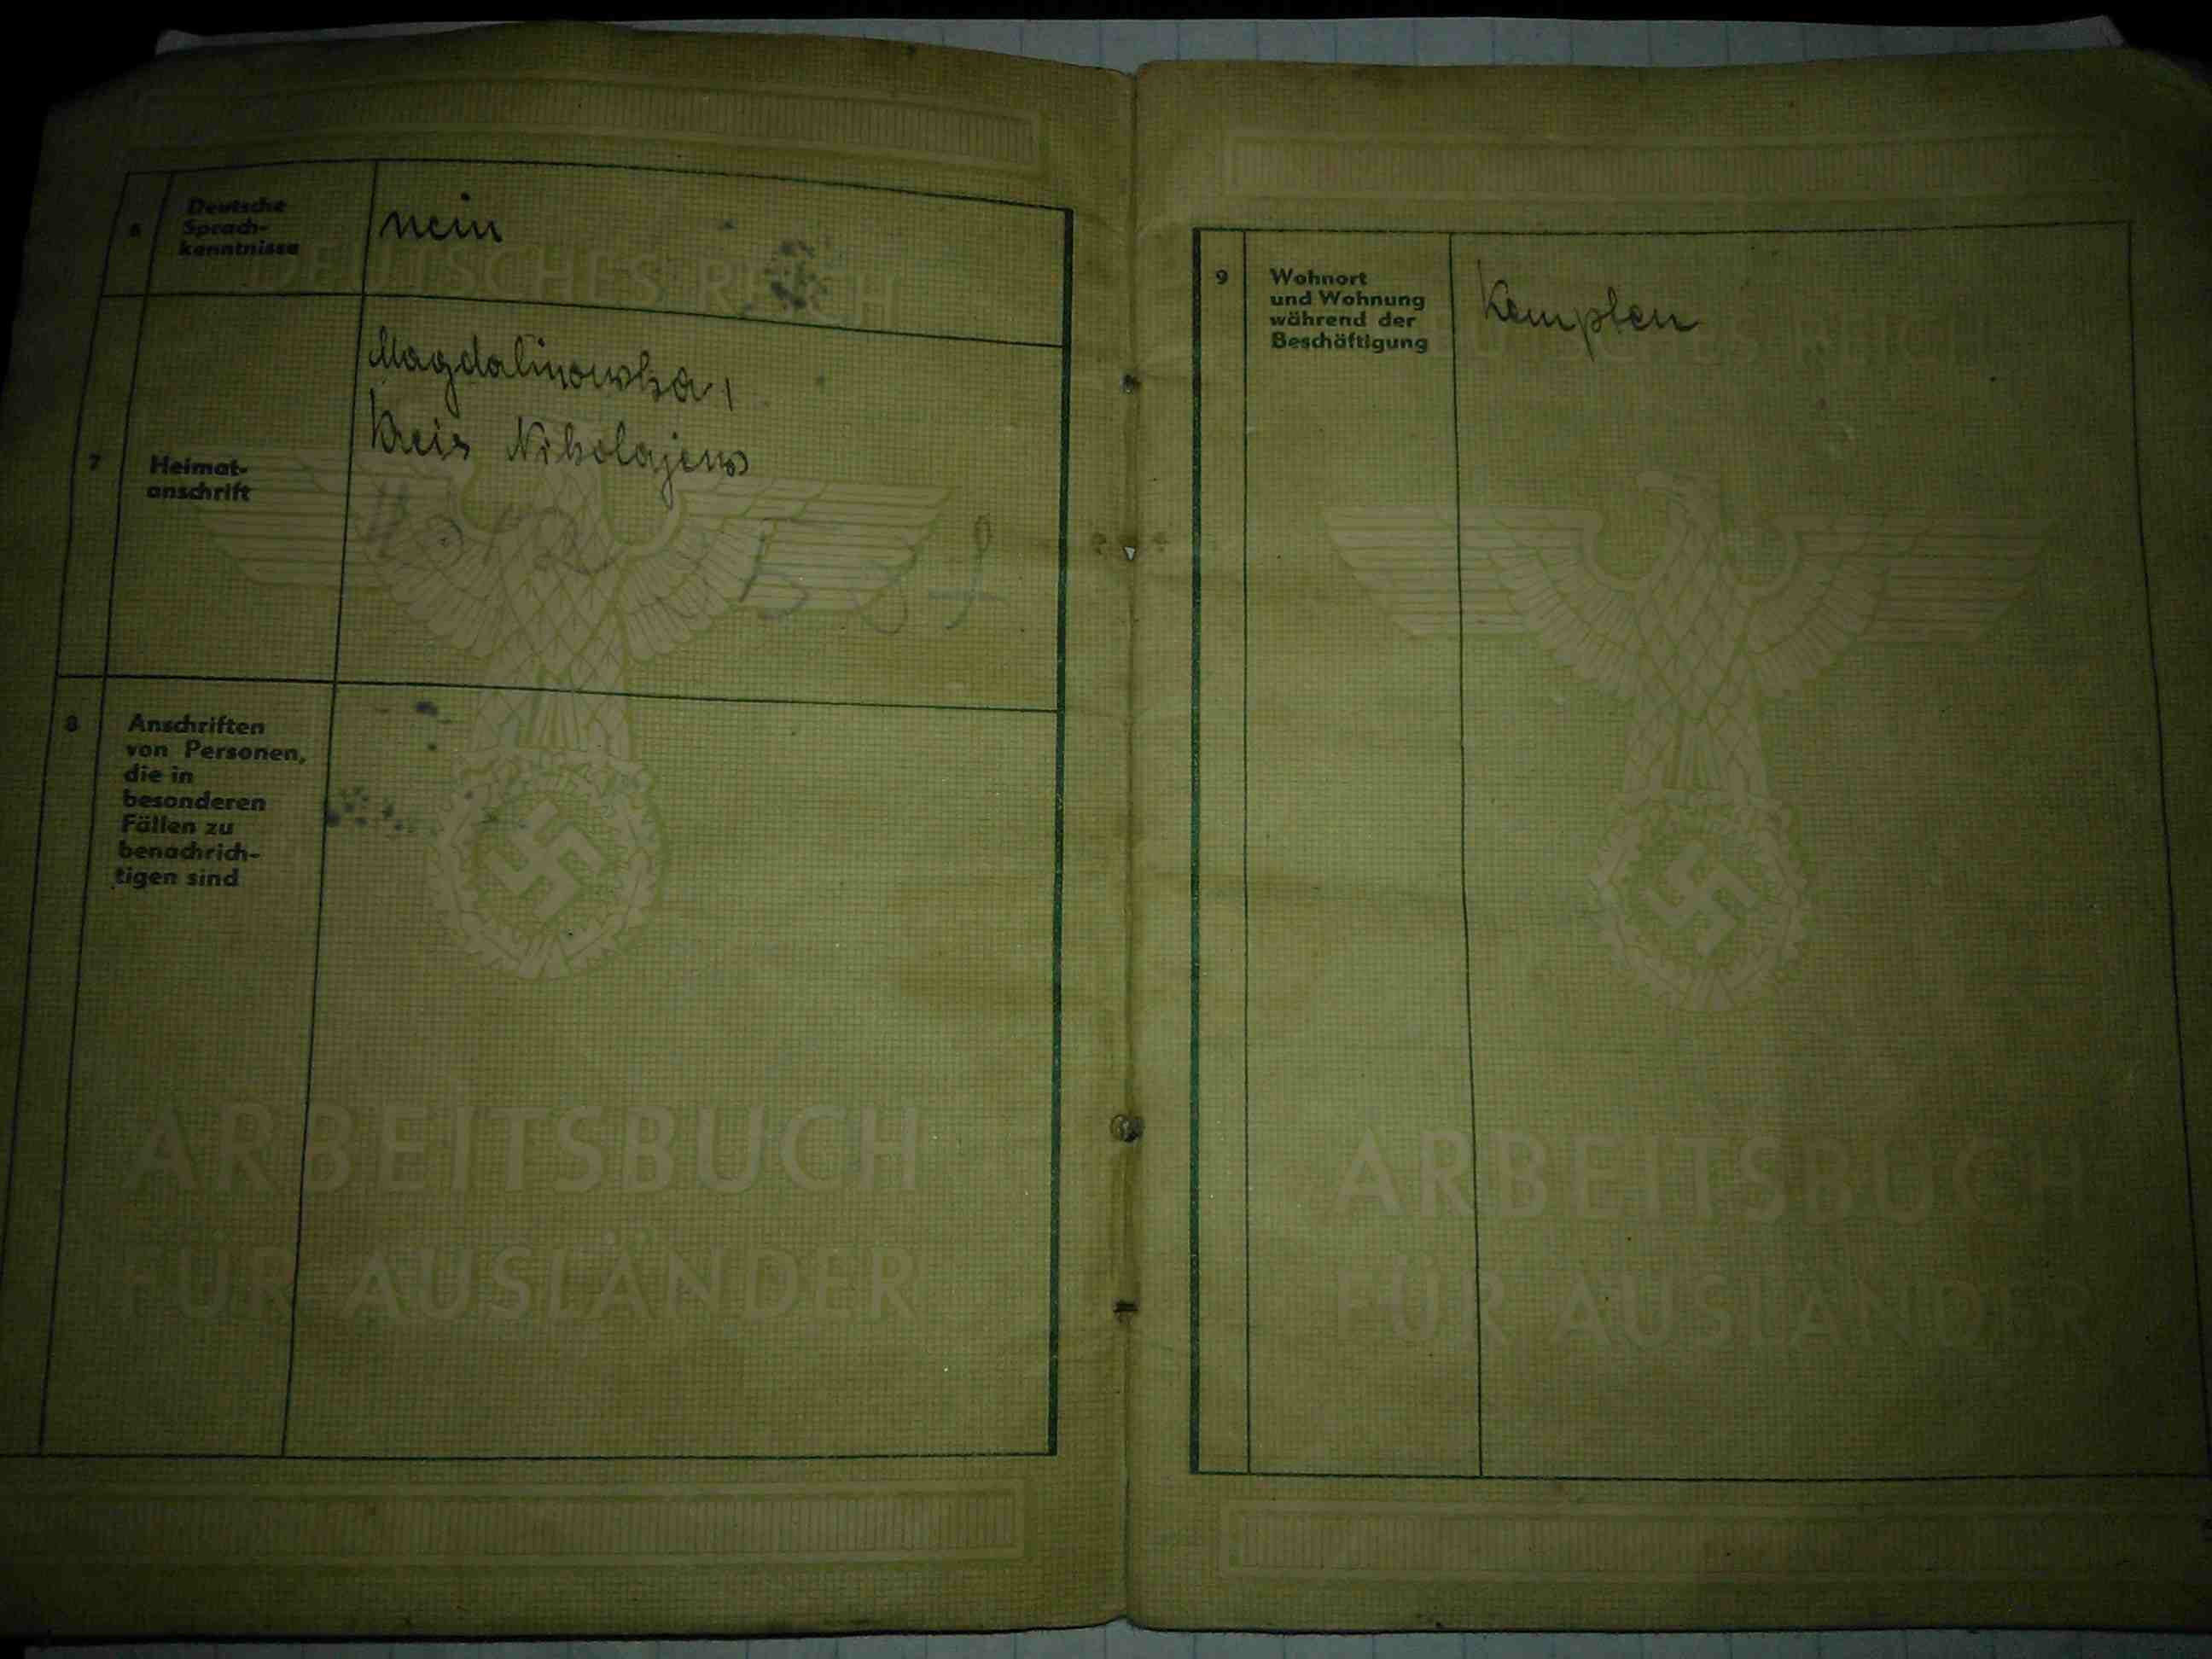 6
Deutsche
Sprach-
kenntnisse
nein
DEUTSCHES REICH
7
Heimat-
anschrift
Magdalinowka,
Kreis Nikolajew
8
Anschriften
von Personen,
die in
besonderen
Fällen zu
benachrich-
tigen sind
ARBEITSBUCH
FÜR AUSLÄNDER
9
Wohnort
und Wohnung
während der
Beschäftigung
Kempten
DEUTSCHES REICH
ARBEITSBUCH
FÜR AUSLÄNDER